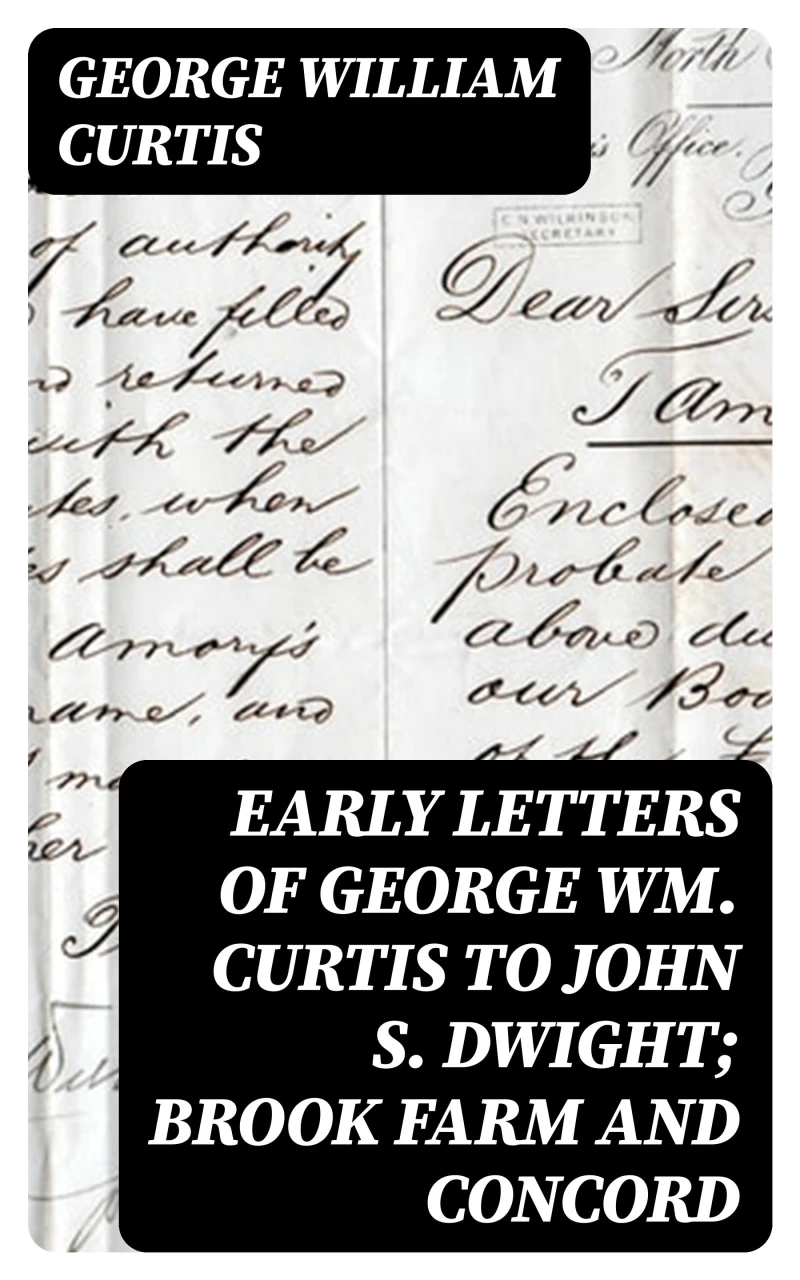 GEORGE WILLIAM
CURTIS
North
's Office.
C N WILKINSON
SECRETARY
of authority
have filled
nd returned
with the
tes, when
es shall be
Amory's
name, and
Dear Sirs
I am
Enclosed
probate
above du
our Boo
of the
EARLY LETTERS
OF GEORGE WM.
CURTIS TO JOHN
S. DWIGHT;
BROOK FARM AND
CONCORD